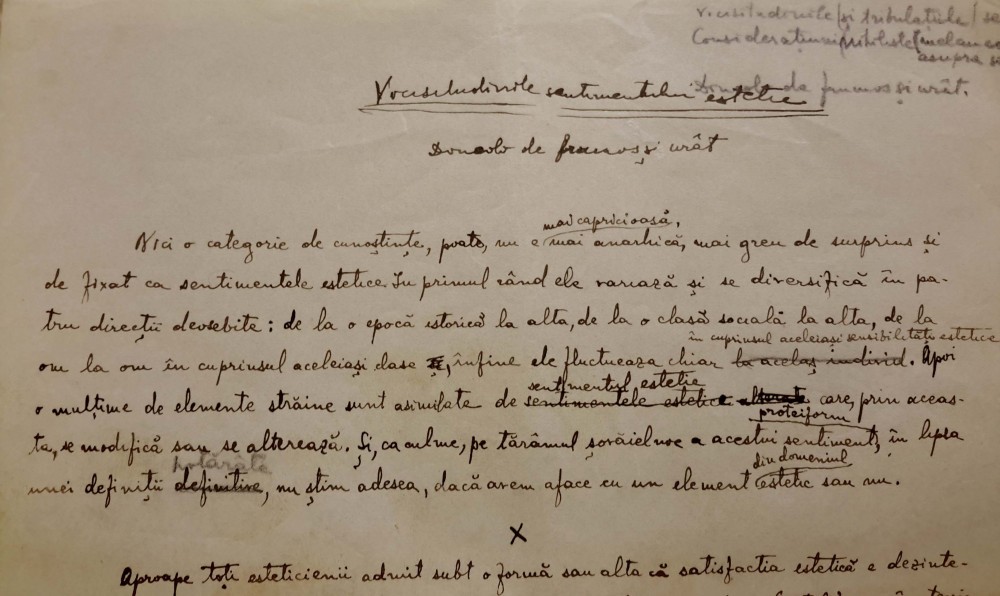 Vicisitudinile (și tribulațiile)
Considerațiuni nihiliste
asupra
Dincolo de frumos și urât.
Vicisitudinile sentimentului estetic
Dincolo de frumos și urât
mai capricioasă,
Nici o categorie de cunoștințe, poate, nu e mai anarhică, mai greu de surprins și
de fixat ca sentimentele estetice. In primul rând ele variază și se diversifică în pa-
tru direcții deosebite: de la o epocă istorică la alta, de la o clasă socială la alta, de la
în cuprinsul aceleiași sensibilități estetice
om la om în cuprinsul aceleiași clase și, înfine ele fluctueaza chiar la acelaș individ. Apoi
sentimentul estetic
o mulțime de elemente străine sunt asimilate de sentimentele estetice care, prin aceas-
proteiform
ta, se modifică sau se alterează. Și, ca culme, pe tărâmul șovăielnic a acestui sentiment, în lipsa
hotărâte
din domeniul
unei definiții definitive, nu știm adesea, dacă avem aface cu un element estetic sau nu.
X
Aproape toți esteticienii admit subt o formă sau alta că satisfactia estetică e dezinte-